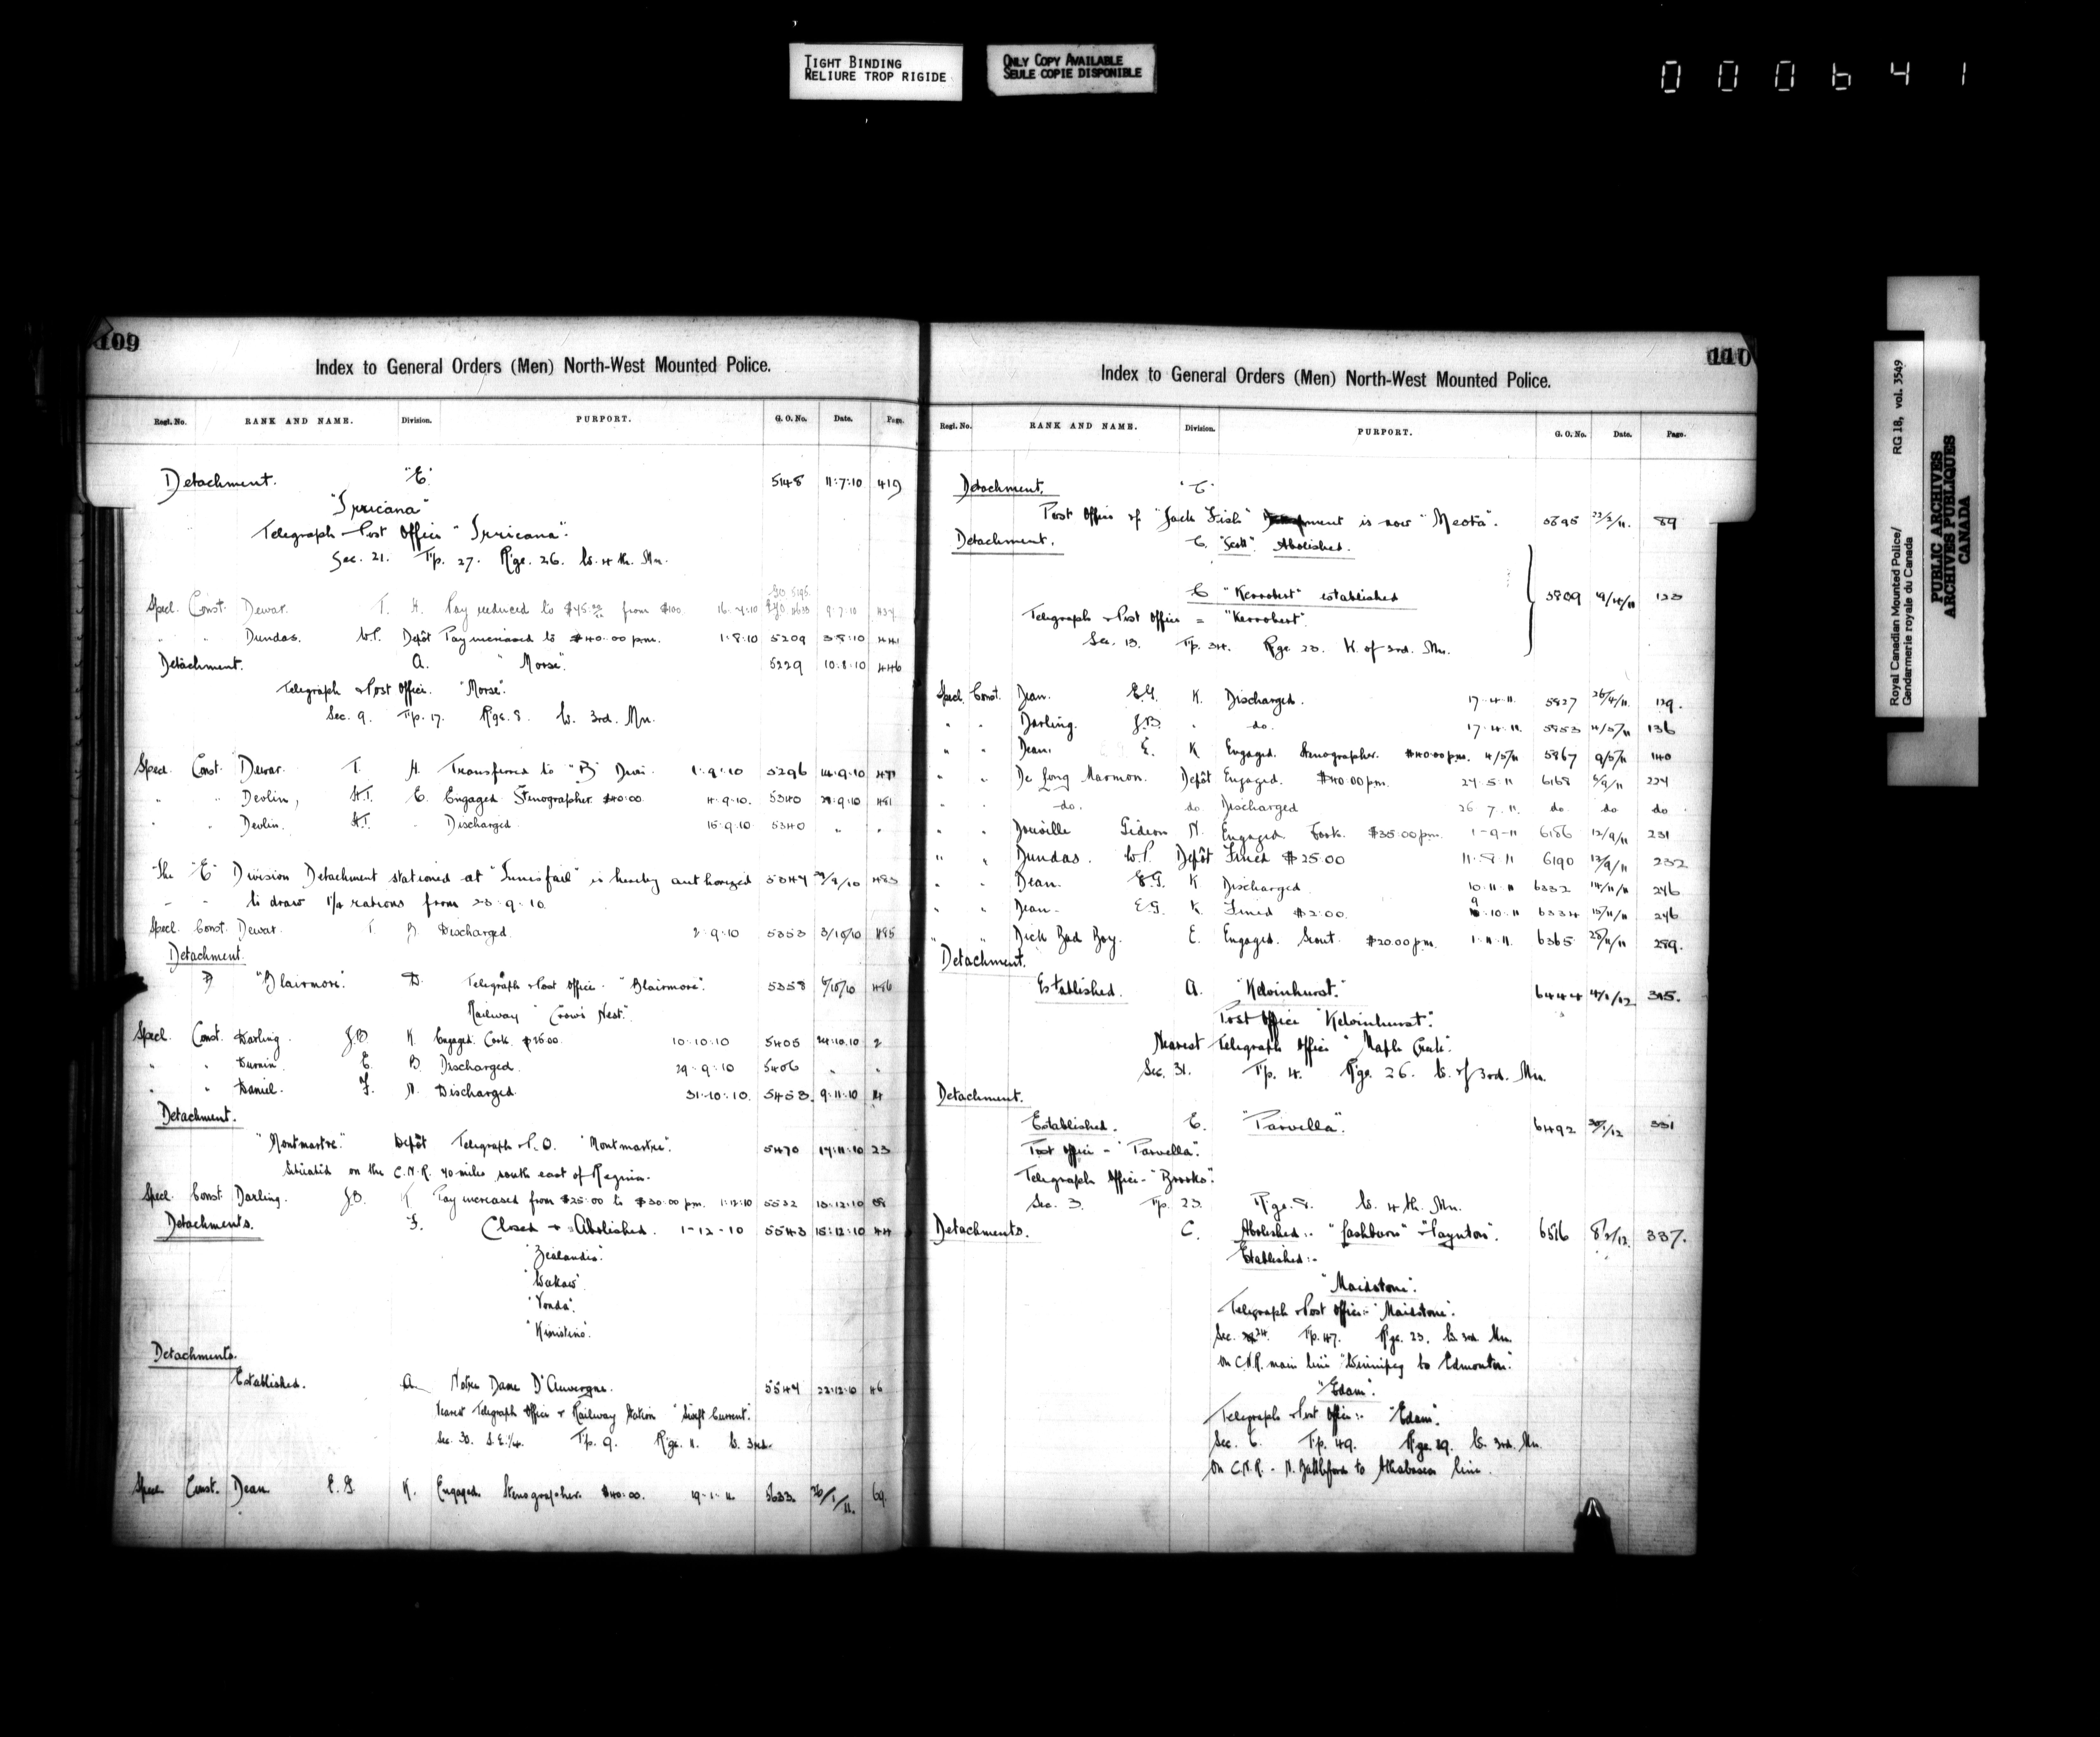 TIGHT BINDING
RELIURE TROP RIGIDE
ONLY COPY AVAILABLE
SEULE COPIE DISPONIBLE
000641
Royal Canadian Mounted Police/ RG 18, vol. 3549
Gendarmerie royale du Canada
PUBLIC ARCHIVES
ARCHIVES PUBLIQUES
CANADA
109
Index to General Orders (Men) North-West Mounted Police.
Regl. No. RANK AND NAME. Division. PURPORT. G. O. No. Date. Page.
Detachment. "E" 5148 11:7:10 419
"Irricana"
Telegraph & Post Office "Irricana".
Sec. 21. Tp. 27. Rge. 26. W. 4th. Mn.
Specl. Const. Dewar. T. H. Pay reduced to $75.00 from $100 9:7:10 437
" " Dundas. W.P. Depôt Pay increased to $40.00 pm. 1:8:10 5209 3:8:10 441
Detachment. A. "Morse". 5229 10:8:10 446
Telegraph & Post Office. "Morse".
Sec. 9. Tp. 17. Rge. 8. W. 3rd. Mn.
Specl. Const. Dewar. T. H. Transferred to "B" Divn. 1:9:10 5296 14:9:10 471
" " Devlin, H.T. E. Engaged Stenographer $40.00 4:9:10. 5340 28:9:10 481
" " Devlin. H.T. " Discharged 15:9:10 5340 " "
The "E" Division Detachment stationed at "Innisfail" is hereby authorized 5347 29/9/10 483
to draw 1¼ rations from 23:9:10
Specl. Const. Dewar. T. B Discharged. 2:9:10 5353 3/10/10 485
Detachment.
"Blairmore". D. Telegraph & Post Office - "Blairmore". 5358 6/10/10 486
Railway "Crow's Nest".
Specl. Const. Darling. J.B. K. Engaged. Cook. $25.00. 10:10:10 5405 24:10:10 2
" " Durnin. E. B. Discharged. 29:9:10 5406 " "
" " Daniel. F. N. Discharged. 31:10:10. 5453. 9:11:10 14
Detachment.
"Montmartre". Depôt Telegraph & P.O. "Montmartre". 5470 17:11:10 23
Situated on the C.N.R. 70 miles south east of Regina.
Specl. Const. Darling. J.B. K Pay increased from $25.00 to $30.00 pm. 1:12:10 5532 13:12:10
Detachments. F. Closed & Abolished. 1-12-10 5543 15:12:10 44
"Zealandia".
"Wakaw".
"Vonda".
"Kinistino".
Detachments.
Established. A. Notre Dame D'Auvergne. 5547 22:12:10 46
Nearest Telegraph Office & Railway Station "Swift Current".
Sec. 30. S.E.¼. Tp. 9. Rge. 11. W. 3rd.
Specl. Const. Dean E.G. K. Engaged Stenographer. $40.00. 19:1:11. 5633. 26/1/11. 69.
110
Index to General Orders (Men) North-West Mounted Police.
Regl. No. RANK AND NAME. Division. PURPORT. G. O. No. Date. Page.
Detachment. "C"
Post Office of "Jack Fish" Detachment is now "Meota". 5695 22/2/11. 89
Detachment. C. "Scott". Abolished.
C "Kerrobert" established 5809 19/4/11 123
Telegraph & Post Office = "Kerrobert".
Sec. 13. Tp. 34. Rge. 23. W. of 3rd. Mn.
Specl. Const. Dean. E.G. K. Discharged. 17:4:11. 5827 26/4/11. 129.
" " Darling. J.B. " do. 17:4:11. 5853 4/5/11 136
" " Dean. E. K Engaged. Stenographer. $40.00 pm. 4/5/11 5867 9/5/11 140
" " De Long Marmon. Depôt Engaged. $40.00 pm. 24:5:11 6168 5/9/11 224
" " do. do Discharged 26:7:11. do do do.
" " Douville Gideon N. Engaged. Cook. $35.00 pm. 1-9-11 6186 12/9/11 231
" " Dundas. W.P. Depôt Fined $25.00 11:8:11 6190 13/9/11 232
" " Dean. E.G. K Discharged. 10:11:11 6332 14/11/11 246
" " Dean. E.G. K. Fined $2.00. 9:10:11 6334 15/11/11 246
" " Dick Bad Boy. E. Engaged. Scout. $20.00 pm. 1:11:11. 6365 28/11/11 289.
Detachment.
Established. A. "Kelvinhurst." 6444 4/1/12 315.
Post Office "Kelvinhurst".
Nearest Telegraph Office "Maple Creek".
Sec. 31. Tp. 4. Rge. 26. W. of 3rd. Mn.
Detachment.
Established. E. "Parvella". 6492 30/1/12 331
Post Office - "Parvella".
Telegraph Office - "Brooks".
Sec. 3. Tp. 23. Rge. 8. W. 4th. Mn.
Detachments. C. Abolished:- "Lashburn" "Paynton". 6516 8/2/12. 337.
Established:-
"Maidstone".
Telegraph & Post Office:- "Maidstone".
Sec. 24. Tp. 47. Rge. 23. W. 3rd. Mn.
On C.N.R. main line "Winnipeg to Edmonton".
"Edam".
Telegraph & Post Office:- "Edam".
Sec. 6. Tp. 49. Rge. 19. W. 3rd. Mn.
On C.N.R. - N. Battleford to Athabasca line.